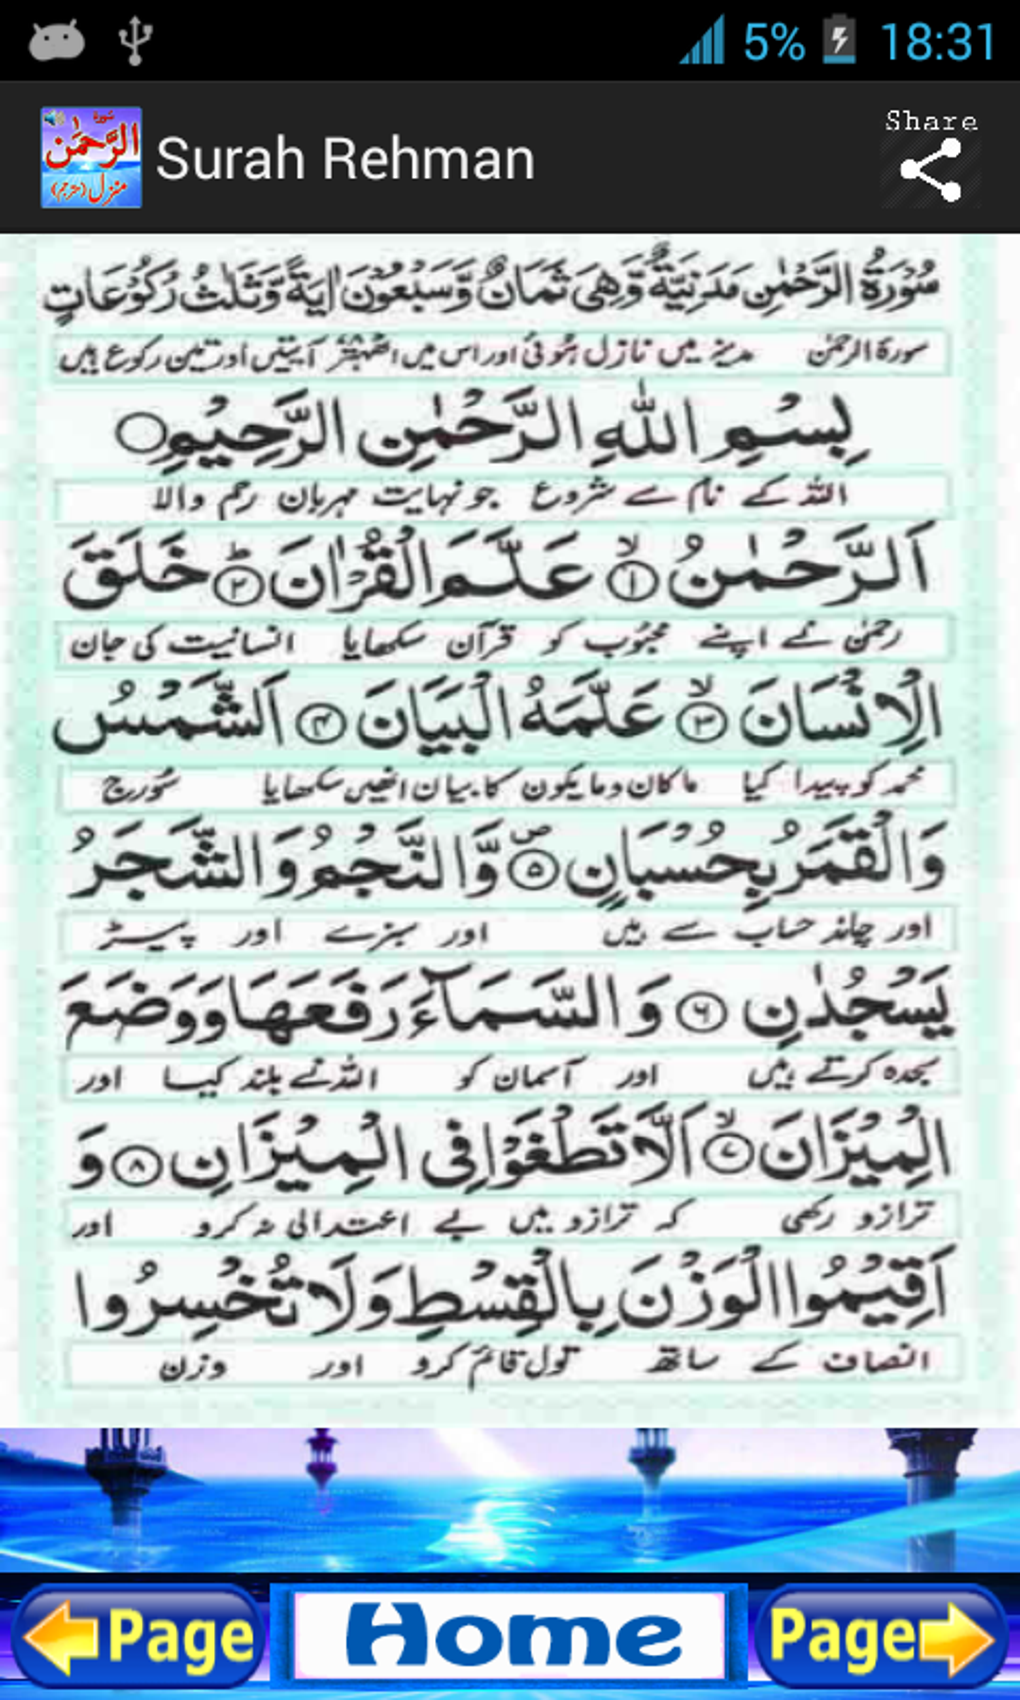 5% 18:31
الرحمٰن
منزل (مترجم)
Surah Rehman
Share
سُوْرَةُ الرَّحْمٰنِ مَدَنِيَّةٌ وَّهِىَ ثَمَانٌ وَّسَبْعُوْنَ اٰيَةً وَّثَلٰثُ رُكُوْعَاتٍ
سورۃ الرحمٰن مدینے میں نازل ہوئی اور اس میں اٹھہتر آیتیں اور تین رکوع ہیں
بِسْمِ اللّٰهِ الرَّحْمٰنِ الرَّحِيْمِ
اللہ کے نام سے شروع جو نہایت مہربان رحم والا
اَلرَّحْمٰنُ ۙ﴿۱﴾ عَلَّمَ الْقُرْاٰنَ ؕ﴿۲﴾ خَلَقَ
رحمٰن نے اپنے محبوب کو قرآن سکھایا انسانیت کی جان
الْاِنْسَانَ ۙ﴿۳﴾ عَلَّمَهُ الْبَيَانَ ﴿۴﴾ اَلشَّمْسُ
محمد کو پیدا کیا ماکان ومایکون کا بیان انھیں سکھایا سُورج
وَالْقَمَرُ بِحُسْبَانٍ ۪﴿۵﴾ وَّالنَّجْمُ وَالشَّجَرُ
اور چاند حساب سے ہیں اور سبزے اور پیڑ
يَسْجُدٰنِ ﴿۶﴾ وَالسَّمَآءَ رَفَعَهَا وَوَضَعَ
سجدہ کرتے ہیں اور آسمان کو اللہ نے بلند کیا اور
الْمِيْزَانَ ۙ﴿۷﴾ اَلَّا تَطْغَوْا فِى الْمِيْزَانِ ﴿۸﴾ وَ
ترازو رکھی کہ ترازو میں بے اعتدالی نہ کرو اور
اَقِيْمُوا الْوَزْنَ بِالْقِسْطِ وَلَا تُخْسِرُوا
انصاف کے ساتھ تول قائم کرو اور وزن
Page Home Page